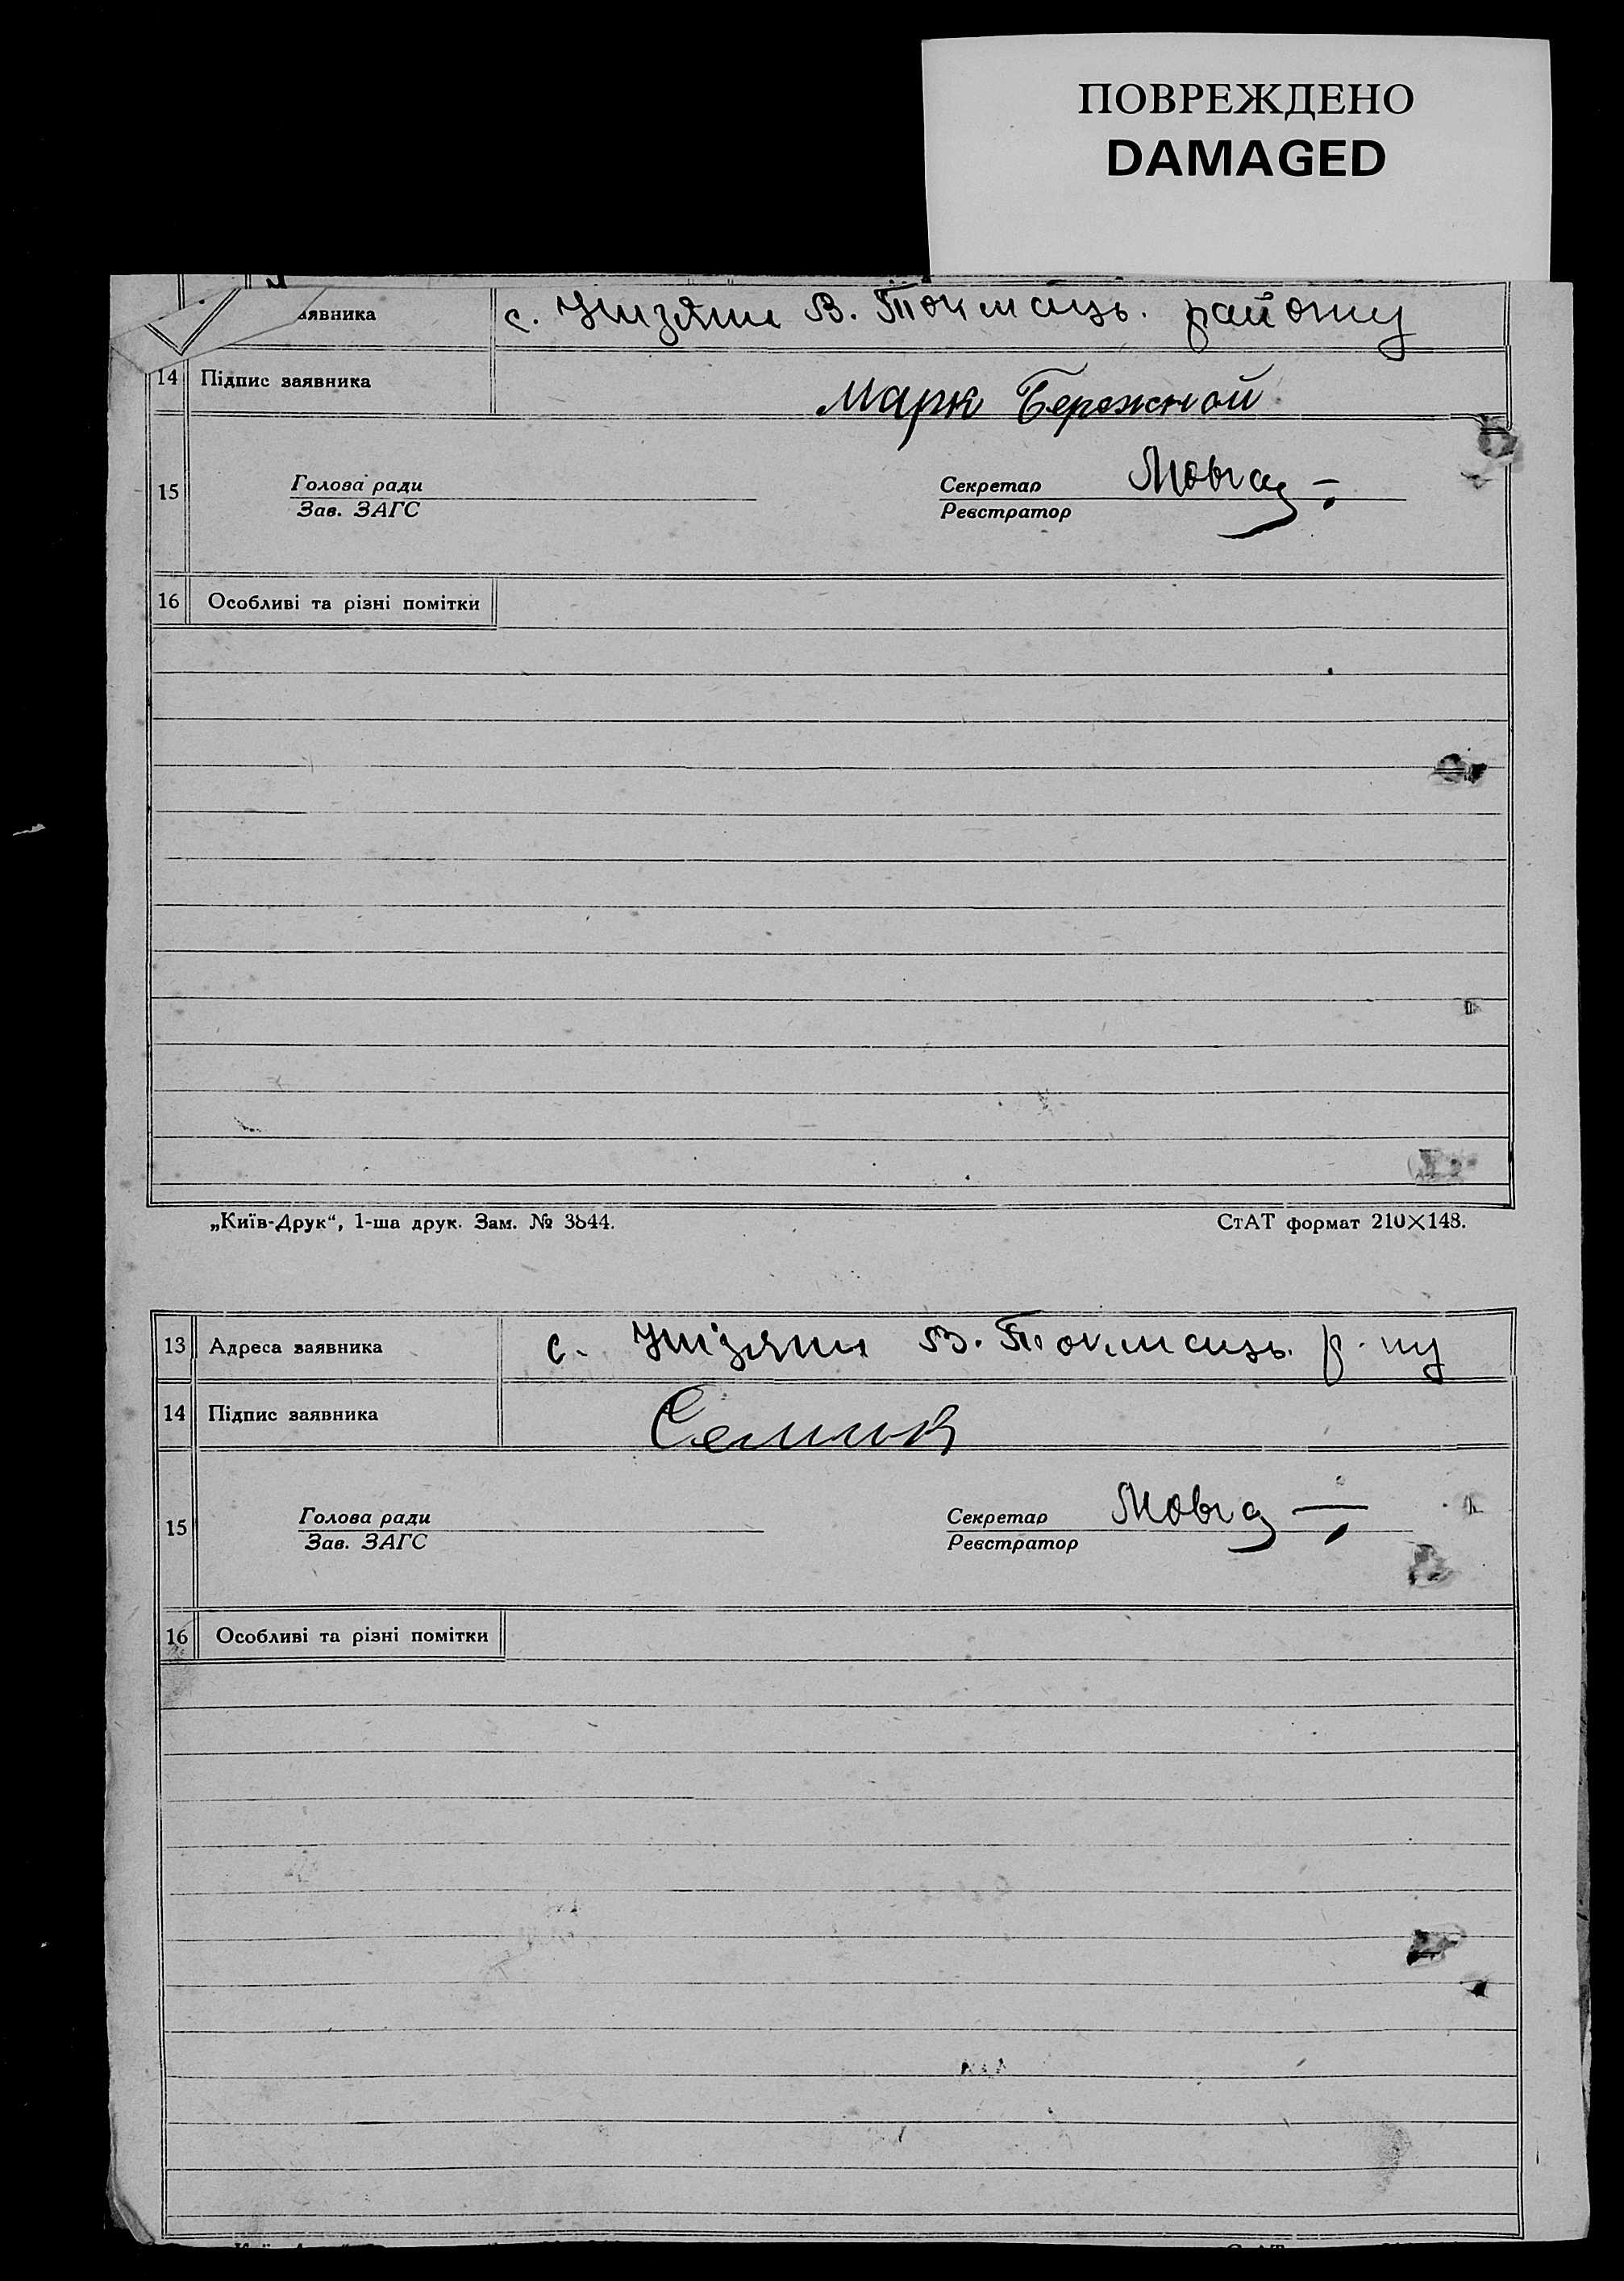 ПОВРЕЖДЕНО
DAMAGED
аявника с. Unзяни В. Токмацьк. району
14 Підпис заявника Марк Бережной
15 Голова ради Секретар
Зав. ЗАГС Реєстратор
16 Особливі та різні помітки
„Київ-Друк“, 1-ша друк. Зам. № 3844. СтАТ формат 210×148.
13 Адреса заявника с. В. Токмацьк. р-ну
14 Підпис заявника Семик
15 Голова ради Секретар
Зав. ЗАГС Реєстратор
16 Особливі та різні помітки